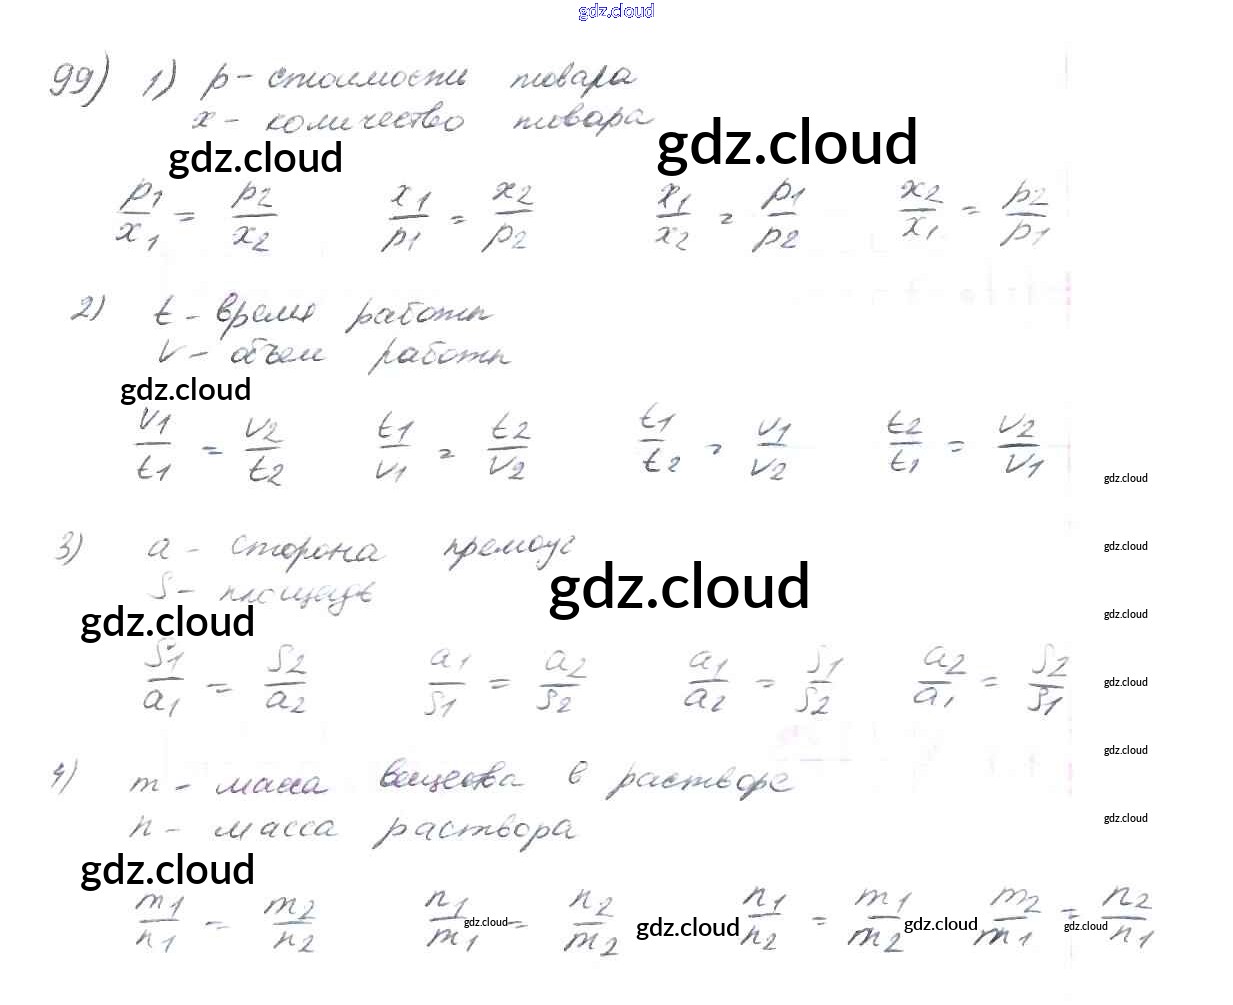 gdz.cloud
99) 1) p - стоимости товара
x - количество товара
gdz.cloud gdz.cloud
p1/x1 = p2/x2 x1/p1 = x2/p2 x1/x2 = p1/p2 x2/x1 = p2/p1
2) t - время работы
V - объем работы
gdz.cloud
V1/t1 = V2/t2 t1/V1 = t2/V2 t1/t2 = V1/V2 t2/t1 = V2/V1
gdz.cloud
3) a - сторона премоуг
gdz.cloud
S - площадь
gdz.cloud
gdz.cloud gdz.cloud
S1/a1 = S2/a2 a1/S1 = a2/S2 a1/a2 = S1/S2 a2/a1 = S2/S1
gdz.cloud
gdz.cloud
4) m - масса вещества в растворе
n - масса раствора
gdz.cloud
gdz.cloud
m1/n1 = m2/n2 n1/m1 = n2/m2 n1/n2 = m1/m2 m2/m1 = n2/n1
gdz.cloud gdz.cloud gdz.cloud gdz.cloud